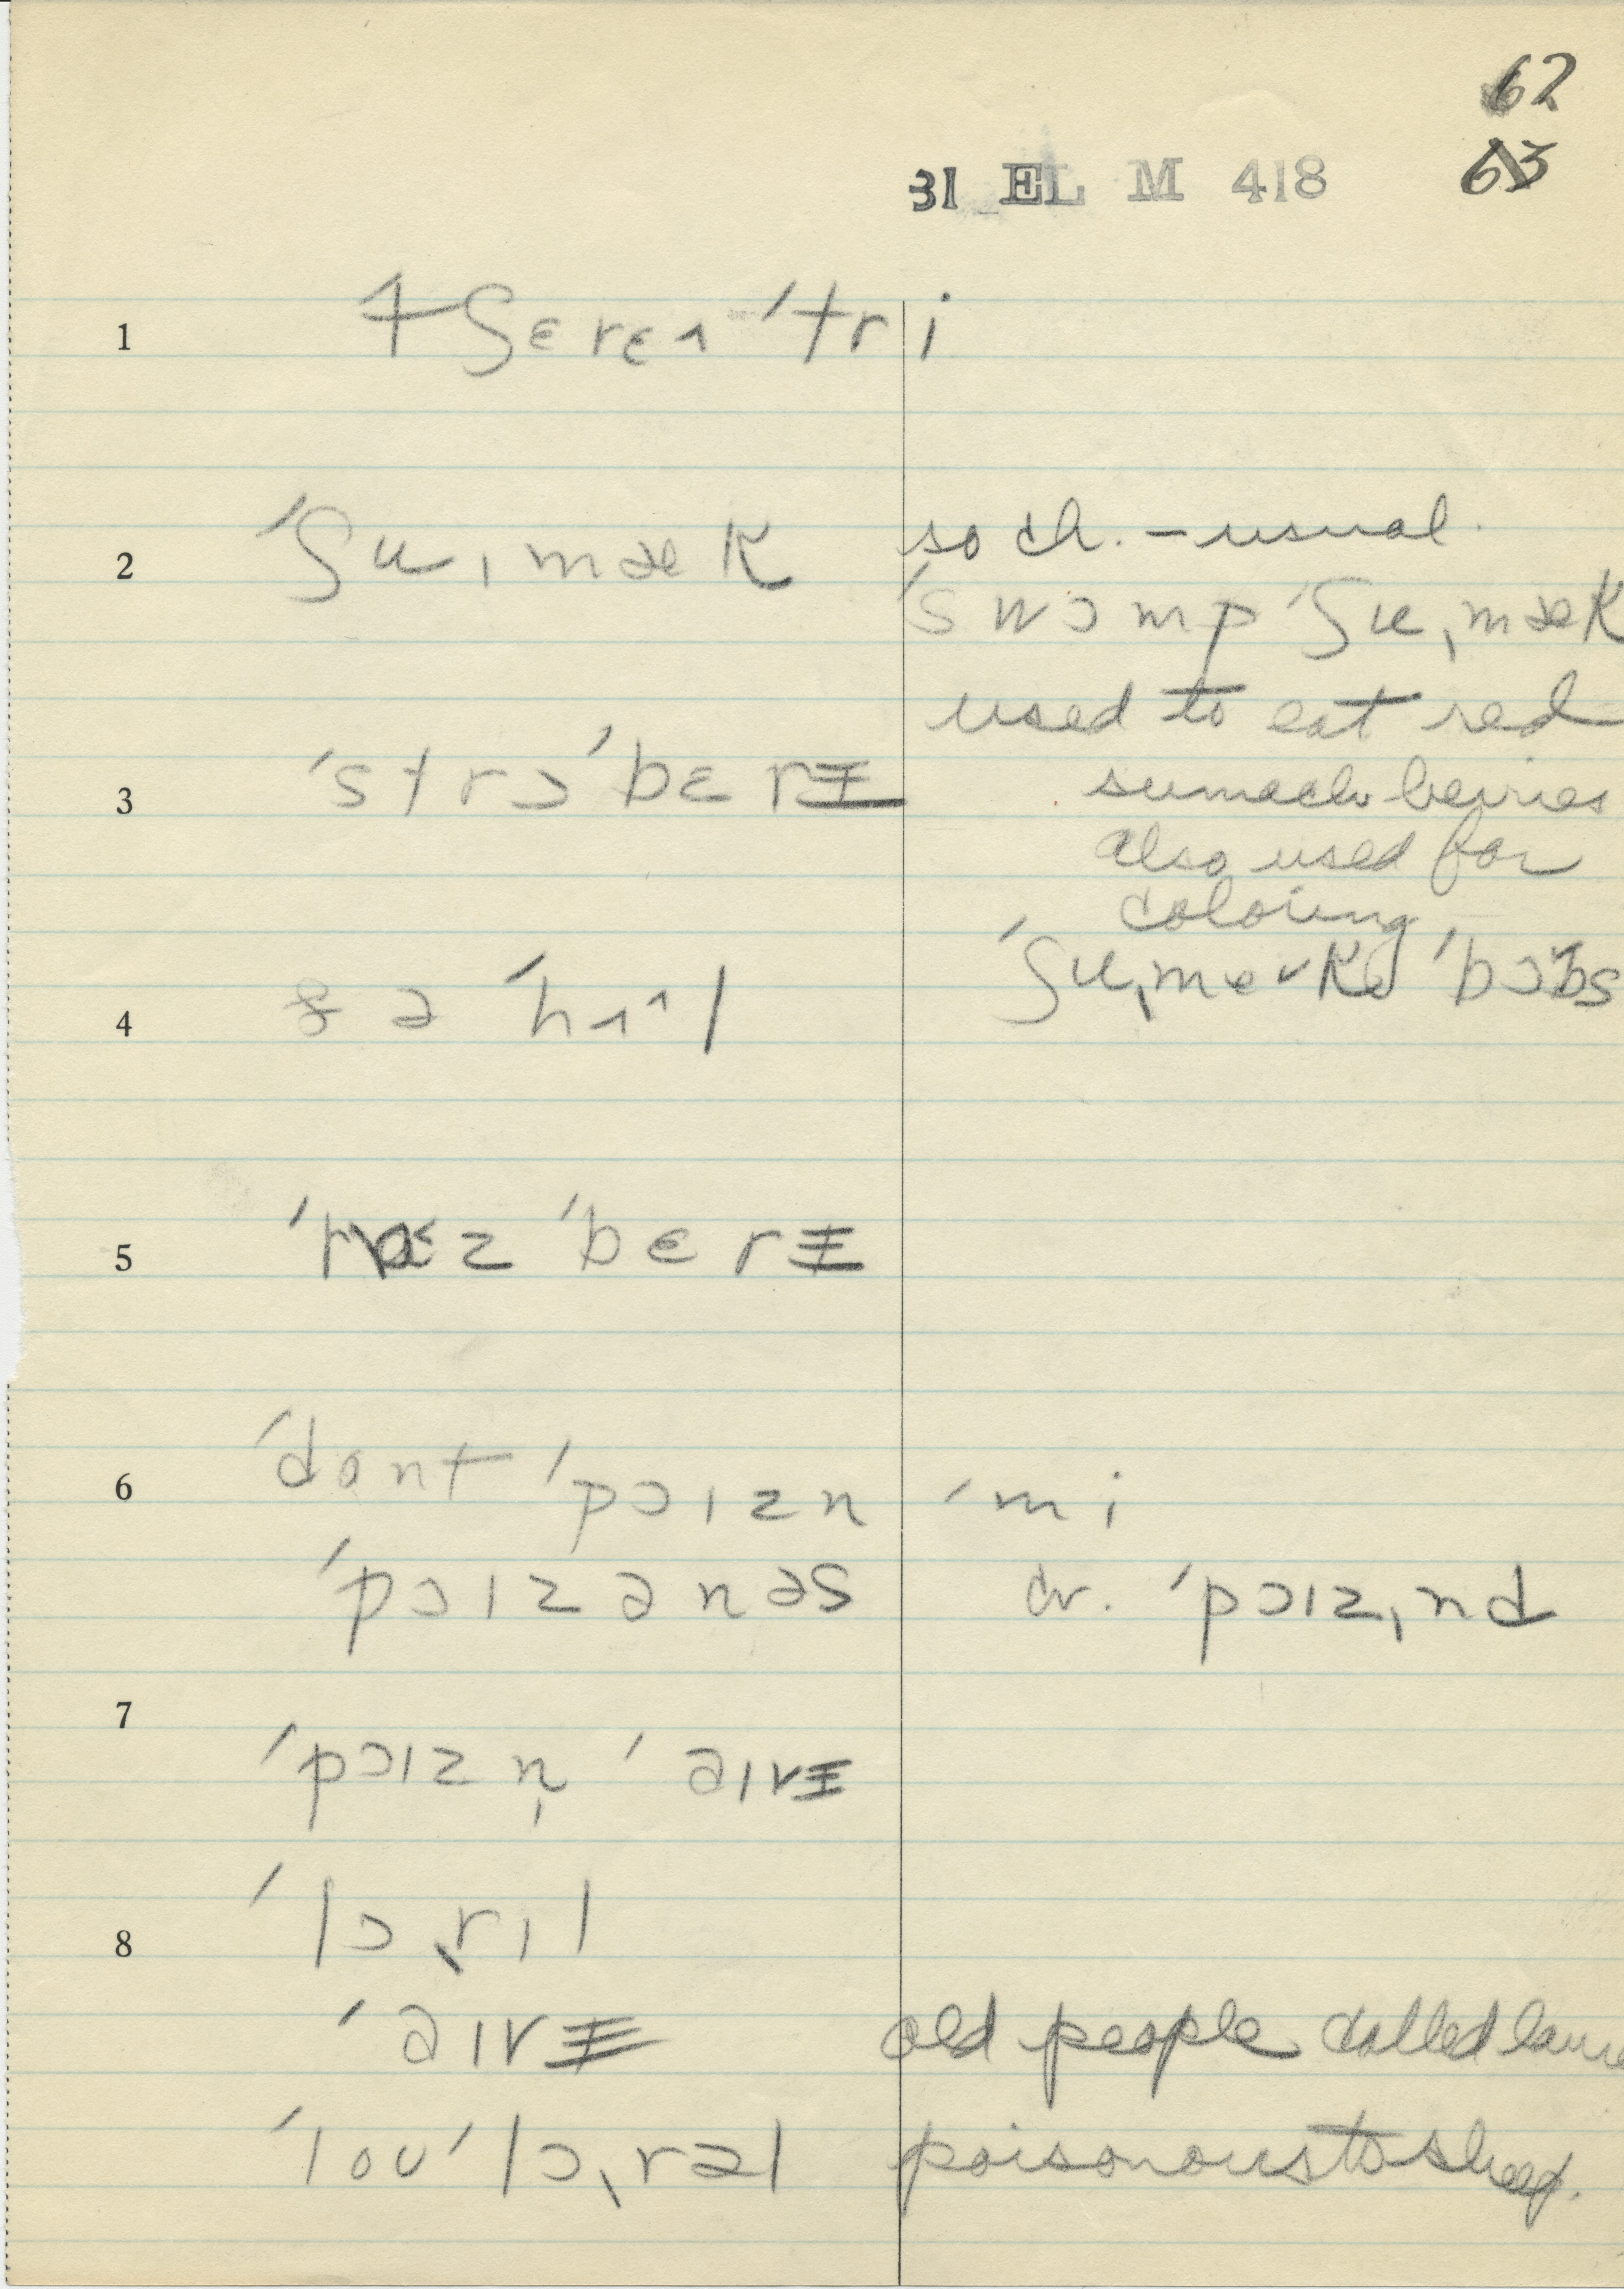 62
31 EL M 418 63
1 tʃɛrɛʌ ˈtri
2 ˈʃu ˌmæk so ch. – usual.
ˈswɔmp ˈʃuˌmæk
used to eat red
3 ˈstrɔ ˈbɛrɪ sumach berries
also used for
coloring
4 ə ˈhʌˆl ˈʃuˌme˅k ˈbɔbs
5 ˈræ˂z ˈbɛrɪ
6 ˈdont ˈpɔɪzn ˈmi
ˈpɔɪzənəs cv. ˈpɔɪzˌnd
7
ˈpɔɪzn̩ ˈəɪvɪ
8 ˈlɔˎrɪl
ˈəɪvɪ old people called
ˈloʊ ˈlɔˎrəl poisonous to sheep.